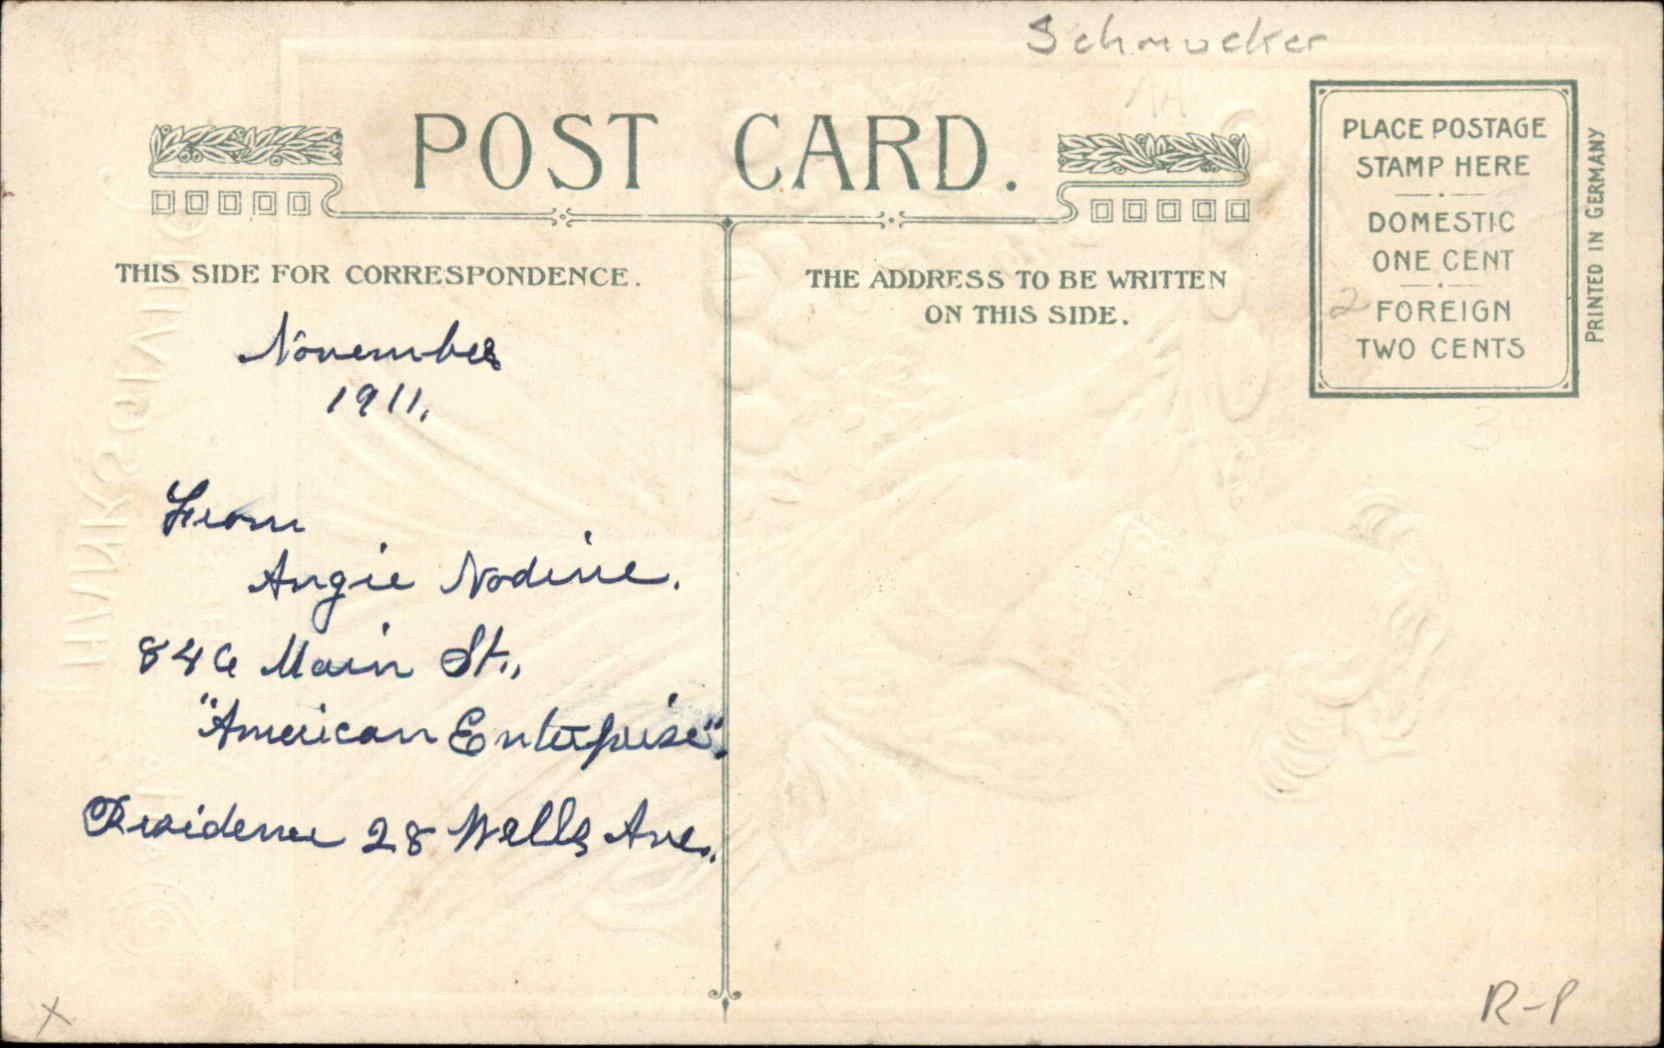 Schmucker
POST CARD.
PLACE POSTAGE
STAMP HERE
DOMESTIC
ONE CENT
FOREIGN
TWO CENTS
PRINTED IN GERMANY
2
3
THIS SIDE FOR CORRESPONDENCE.
THE ADDRESS TO BE WRITTEN
ON THIS SIDE.
November
1911.
From
Angie Nodine.
846 Main St.,
"American Enterprise".
Residence 28 Wells Ave.
THANKSGIVING
X
R-P